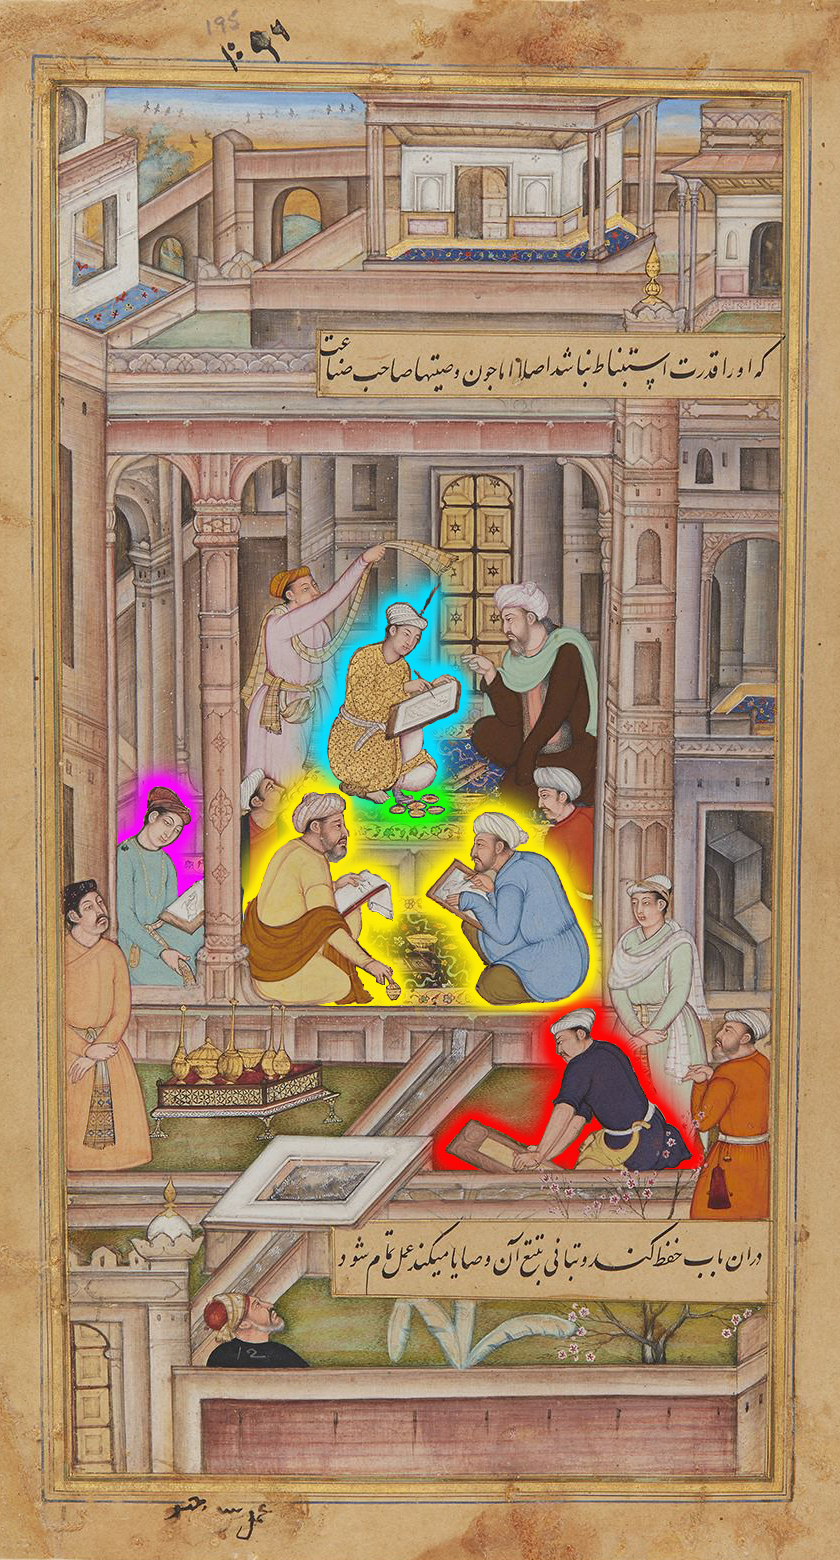 195
که او را قدرت استنباط نباشد اصلا اما چون وصیتها صاحب صناعت
در ان باب حفظ کند و تبانی بتتبع آن وصایا میکند عمل تمام شود
12
عمل